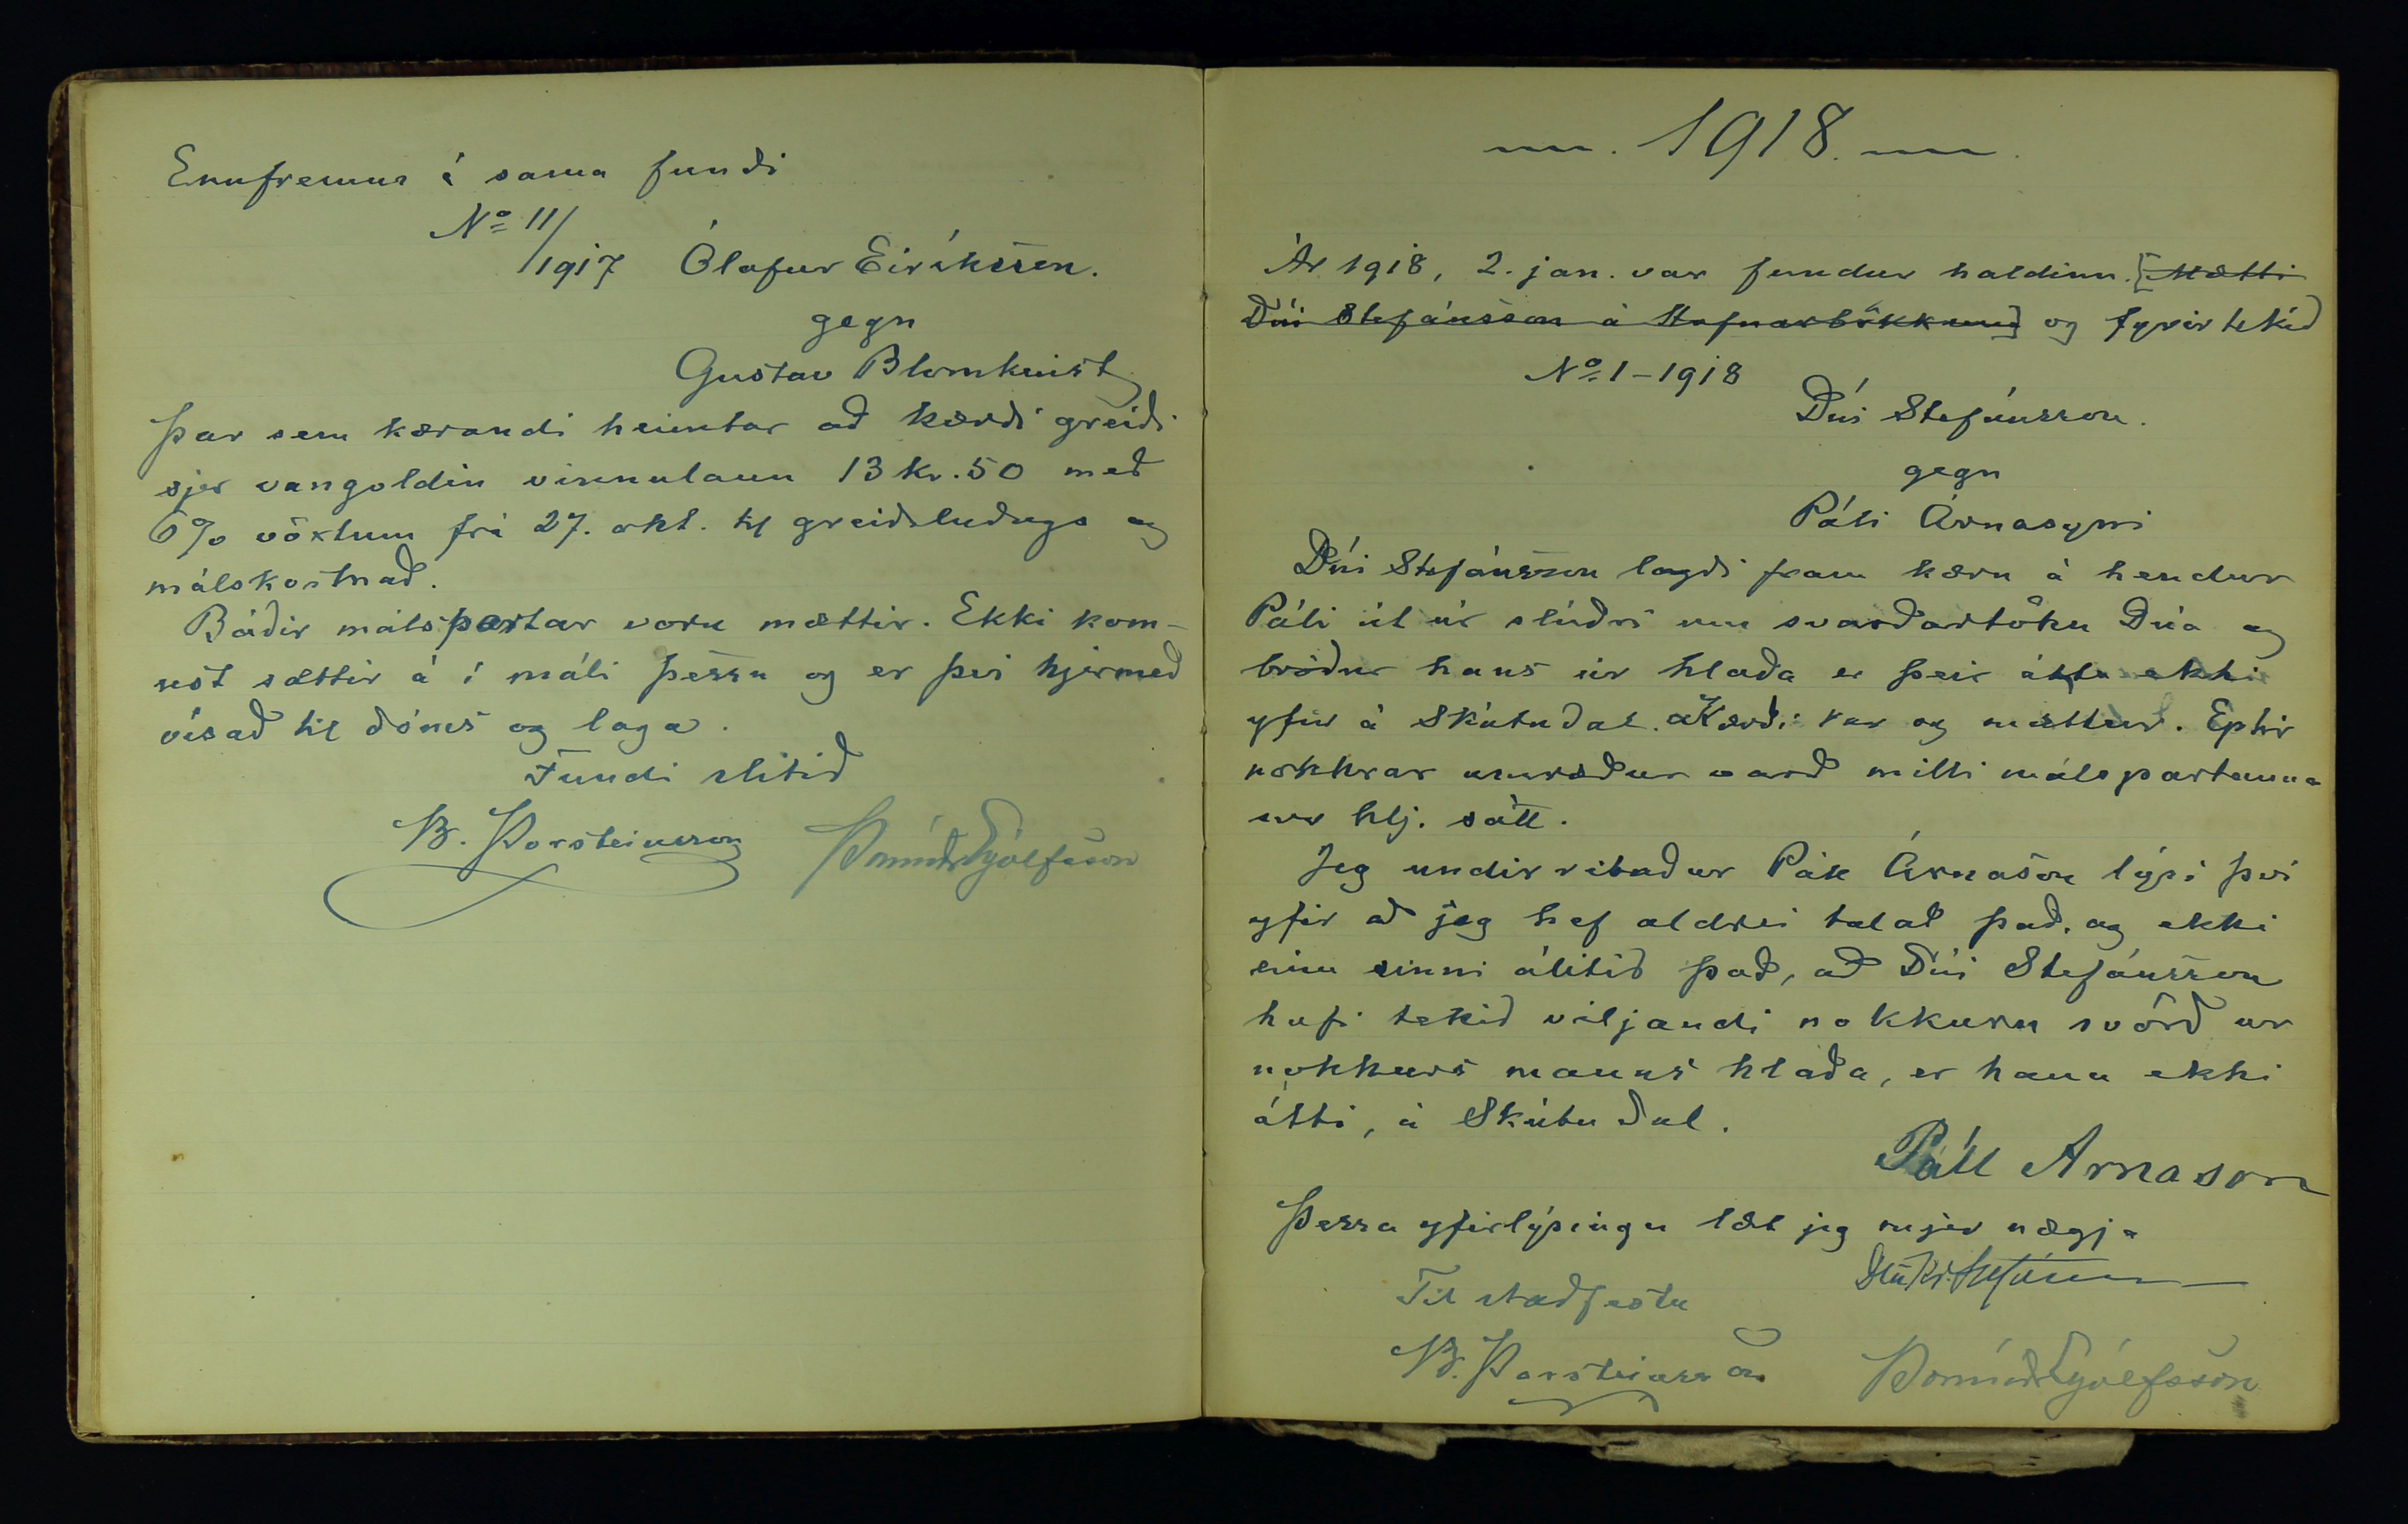 Ennfremur á sama fundi
No 11/1917 Ólafur Eiríksson.
gegn
Gustav Blomkvist
Þar sem kærandi heimtar að kærði greiði
sjer vangoldin vinnulaun 13 kr. 50 með
6% vöxtum frá 27. okt. til greiðsludags og
málskostnað.
Báðir málspartar voru mættir. Ekki kom-
ust sættir á í máli þessu og er því hjermeð
vísað til dóms og laga.
Fundi slitið
B. Þorsteinsson Þormóður Eyólfsson
1918.
Ár 1918, 2. jan. var fundur haldinn. [Mætti
Dúi Stefánsson á Hafnarbökkum] og fyrir tekið
No 1-1918
Dúi Stefánsson.
gegn
Páli Árnasyni
Dúi Stefánsson lagði fram kæru á hendur
Páli út úr slúðri um svarðartöku Dúa og
bróður hans úr hlaða er þeir áttu ekki
yfir á Skútudal. Kærði var og mættur. Eptir
nokkrar umræður varð milli málspartanna
svo hlj. sátt.
Jeg undirritaður Páll Árnason lýsi því
yfir að jeg hef aldrei talað það, og ekki
einu sinni álitið það, að Dúi Stefánsson
hafi tekið viljandi nokkurn svörð úr
nokkurs manns hlaða, er hann ekki
átti, á Skútudal.
Páll Arnason
Þessa yfirlýsingu læt jeg mjer nægja
Dúi Kr. Stefánsson
Til staðfestu
B. Þorsteinsson Þormóður Eyólfsson